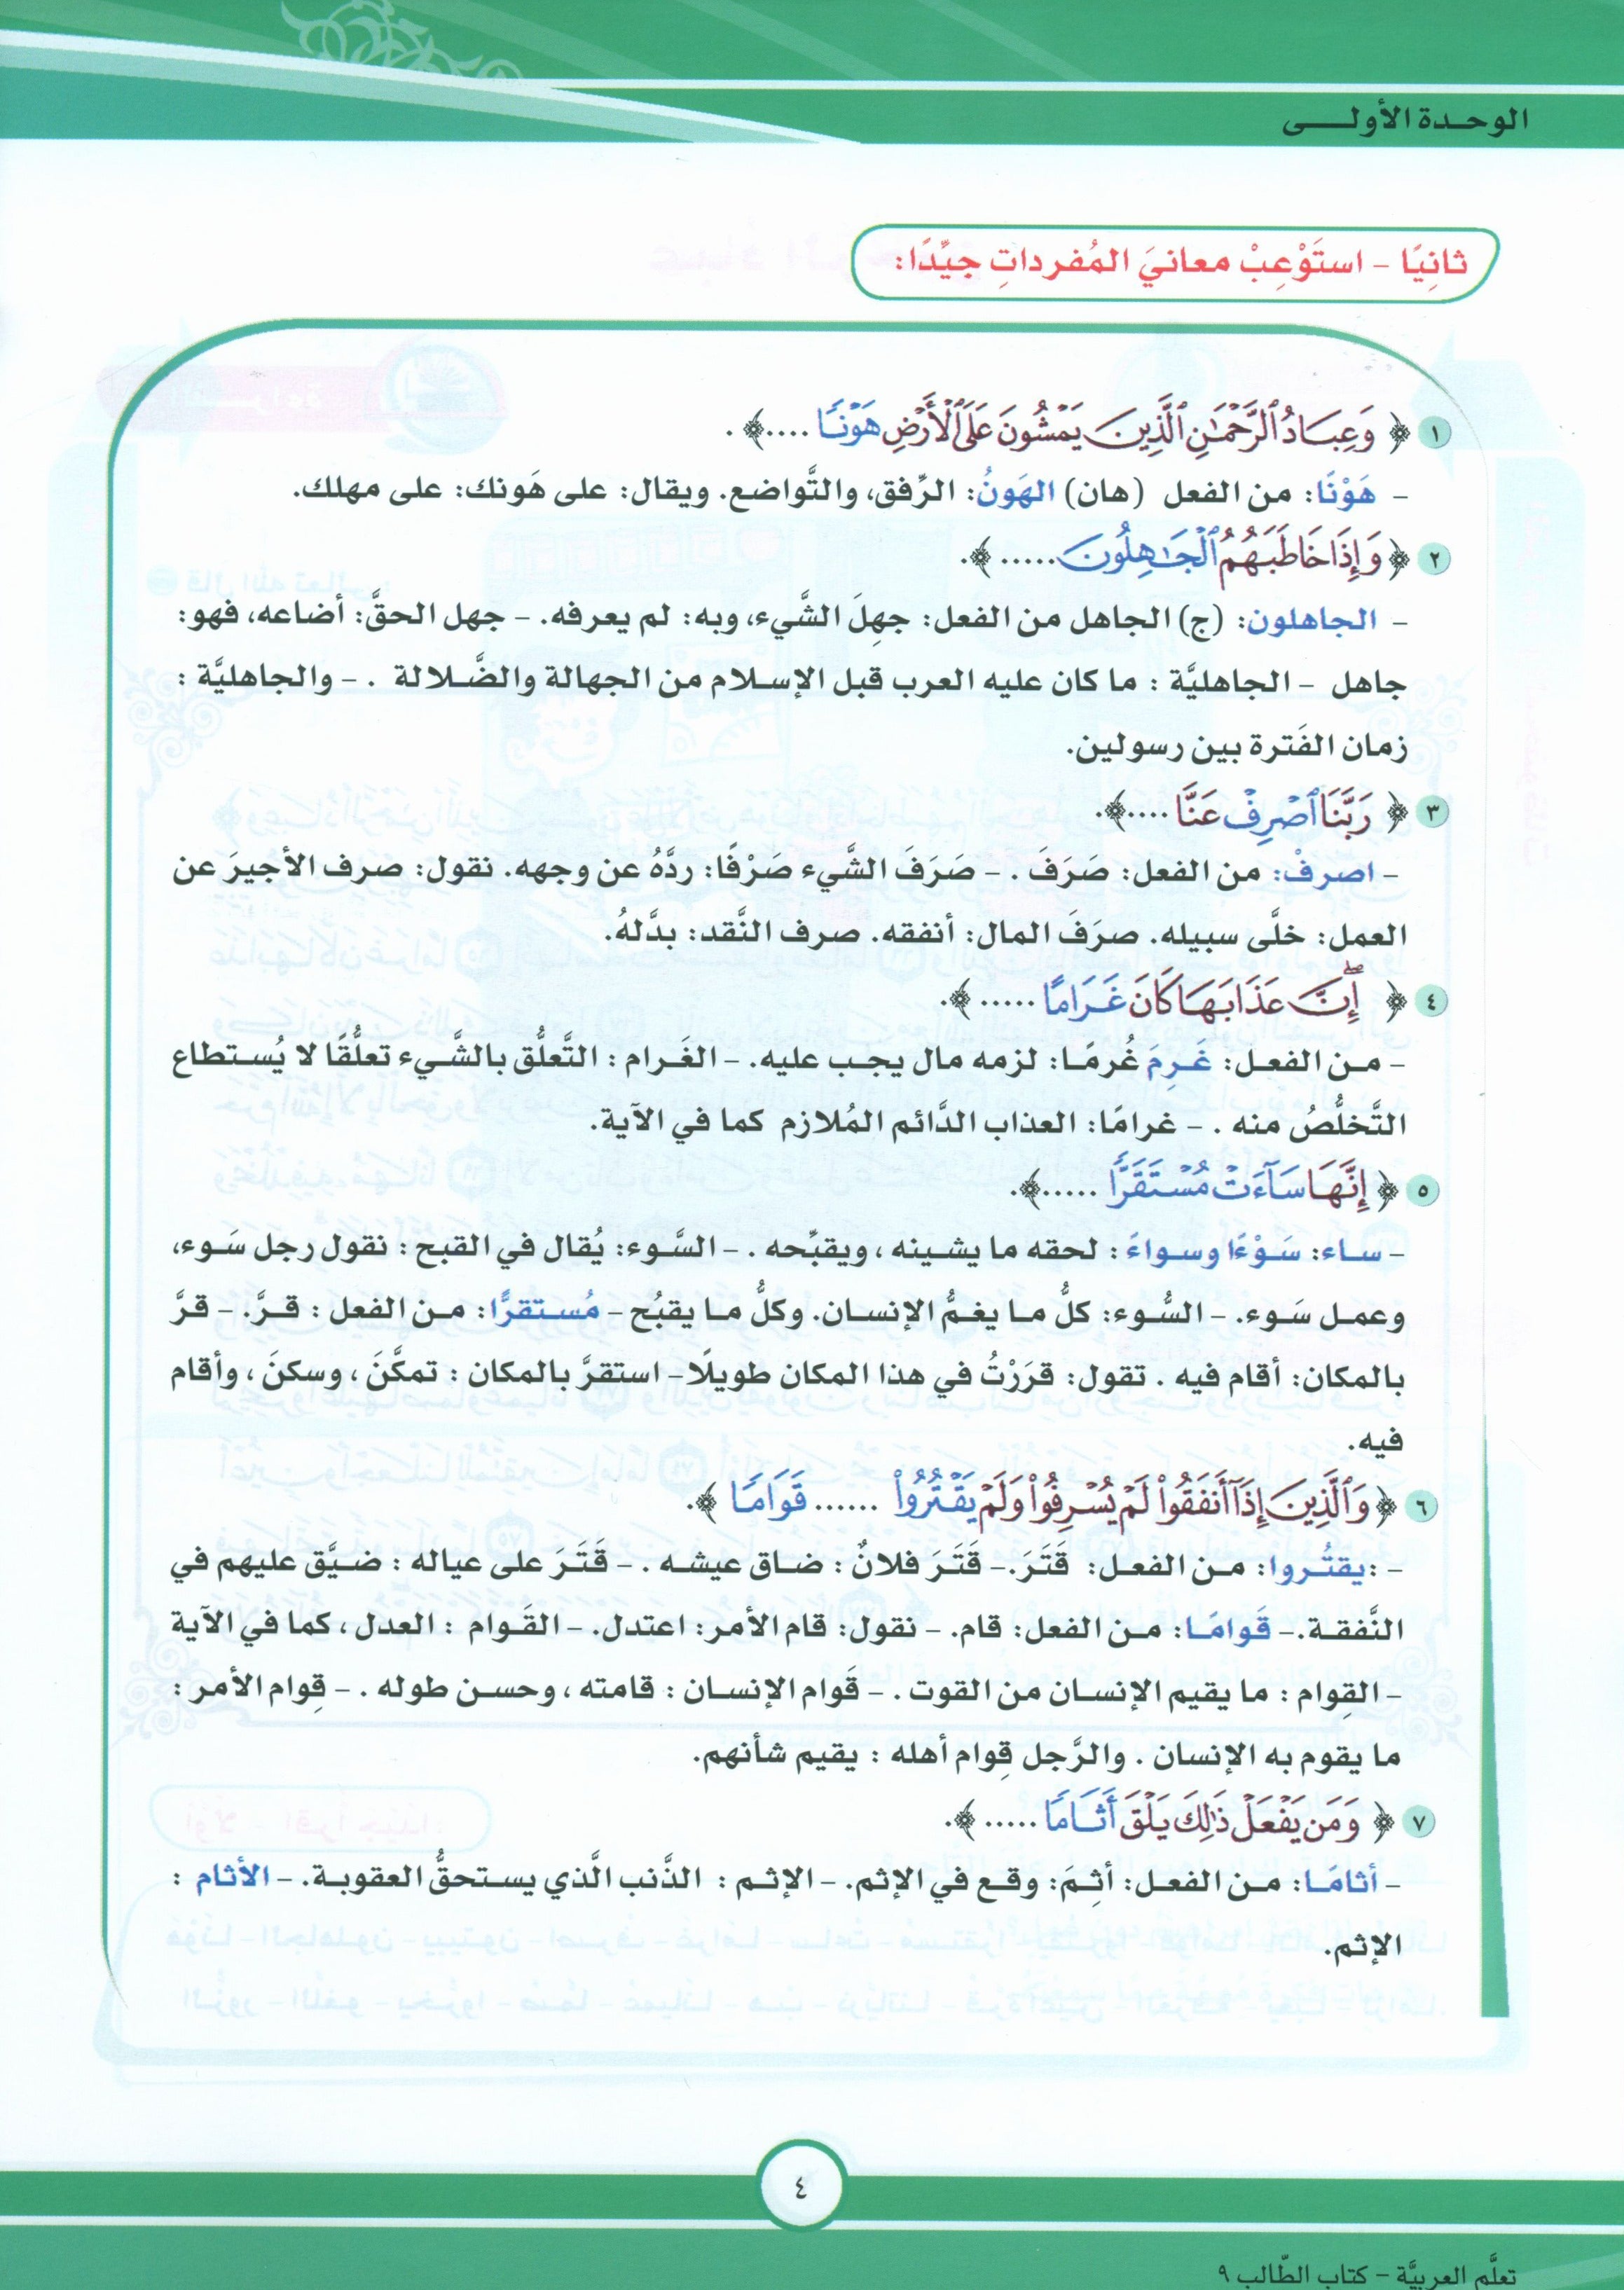 الوحـدة الأولـــى
ثانِيًا - استَوْعِبْ معانيَ المُفرداتِ جيِّدًا:
١ ﴿ وَعِبَادُ ٱلرَّحْمَٰنِ ٱلَّذِينَ يَمْشُونَ عَلَى ٱلْأَرْضِ هَوْنًا ....﴾ .
- هَوْنًا: من الفعل (هان) الهَونُ: الرِّفق، والتَّواضع. ويقال: على هَونك: على مهلك.
٢ ﴿ وَإِذَا خَاطَبَهُمُ ٱلْجَٰهِلُونَ ..... ﴾.
- الجاهلون: (ج) الجاهل من الفعل: جهِلَ الشَّيء، وبه: لم يعرفه. - جهل الحقَّ: أضاعه، فهو:
جاهل - الجاهليَّة : ما كان عليه العرب قبل الإسلام من الجهالة والضَّلالة . - والجاهليَّة :
زمان الفَترة بين رسولين.
٣ ﴿ رَبَّنَا ٱصْرِفْ عَنَّا ....﴾.
- اصرفْ: من الفعل: صَرَفَ . - صَرَفَ الشَّيء صَرْفًا: ردَّهُ عن وجهه. نقول: صرف الأجيرَ عن
العمل: خلَّى سبيله. صرَفَ المال: أنفقه. صرف النَّقد: بدَّلهُ.
٤ ﴿ إِنَّ عَذَابَهَا كَانَ غَرَامًا ..... ﴾.
- من الفعل: غَرِمَ غُرمًا: لزمه مال يجب عليه. - الغَرام : التَّعلُّق بالشَّيء تعلُّقًا لا يُستطاع
التَّخلُّصُ منه . - غرامًا: العذاب الدَّائم المُلازم كما في الآية.
٥ ﴿ إِنَّهَا سَآءَتْ مُسْتَقَرًّا .....﴾.
- ساء: سَوْءًا وسواءً : لحقه ما يشينه ، ويقبِّحه . - السَّوء: يُقال في القبح : نقول رجل سَوء،
وعمل سَوء. - السُّوء: كلُّ ما يغمُّ الإنسان. وكلُّ ما يقبُح - مُستقرًّا: من الفعل : قرَّ. - قرَّ
بالمكان: أقام فيه . تقول: قرَرْتُ في هذا المكان طويلًا- استقرَّ بالمكان : تمكَّنَ ، وسكنَ ، وأقام
فيه.
٦ ﴿ وَٱلَّذِينَ إِذَآ أَنفَقُواْ لَمْ يُسْرِفُواْ وَلَمْ يَقْتُرُواْ ...... قَوَامًا ﴾.
- :يقتُروا: من الفعل: قَتَرَ.- قَتَرَ فلانٌ : ضاق عيشه . - قَتَرَ على عياله : ضيَّق عليهم في
النَّفقة.- قَوامًا: من الفعل: قام. - نقول: قام الأمر: اعتدل. - القَوام : العدل ، كما في الآية
- القِوام : ما يقيم الإنسان من القوت . - قَوام الإنسان : قامته ، وحسن طوله . - قِوام الأمر :
ما يقوم به الإنسان . والرَّجل قِوام أهله : يقيم شأنهم.
٧ ﴿ وَمَن يَفْعَلْ ذَٰلِكَ يَلْقَ أَثَامًا ..... ﴾.
- أثامًا: من الفعل: أثِمَ: وقع في الإثم. - الإثم : الذَّنب الَّذي يستحقُّ العقوبة. - الأثام :
الإثم.
٤
تعلَّم العربيَّة - كتاب الطّالب ٩